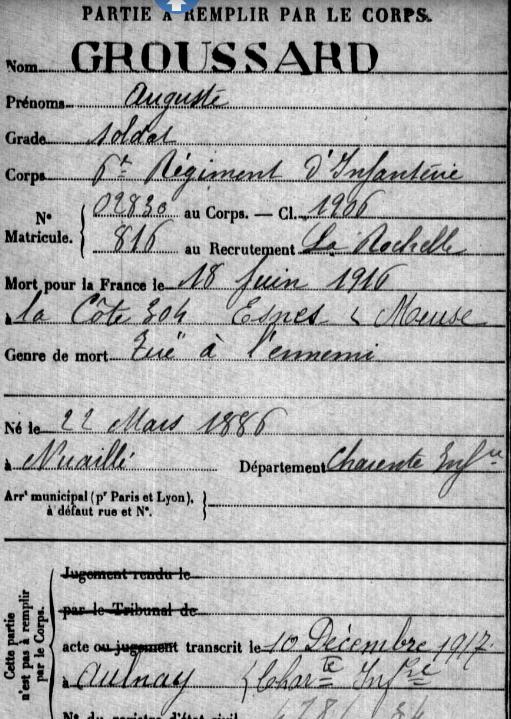 PARTIE A REMPLIR PAR LE CORPS.
Nom GROUSSARD
Prénoms Auguste
Grade Soldat
Corps 6e Régiment D'Infanterie
N° Matricule. { 02830 au Corps. — Cl. 1906
816 au Recrutement La Rochelle
Mort pour la France le 18 Juin 1916
à la Côte 304 Esnes Meuse
Genre de mort Tué à l'ennemi
Né le 22 Mars 1886
à Nuaillé Département Charente Infre
Arrt municipal (pr Paris et Lyon), }
à défaut rue et N°.
Cette partie n'est pas à remplir par le Corps.
Jugement rendu le
par le Tribunal de
acte ou jugement transcrit le 10 Décembre 1917
à Aulnay (Charte Infre
N° du registre d'état civil